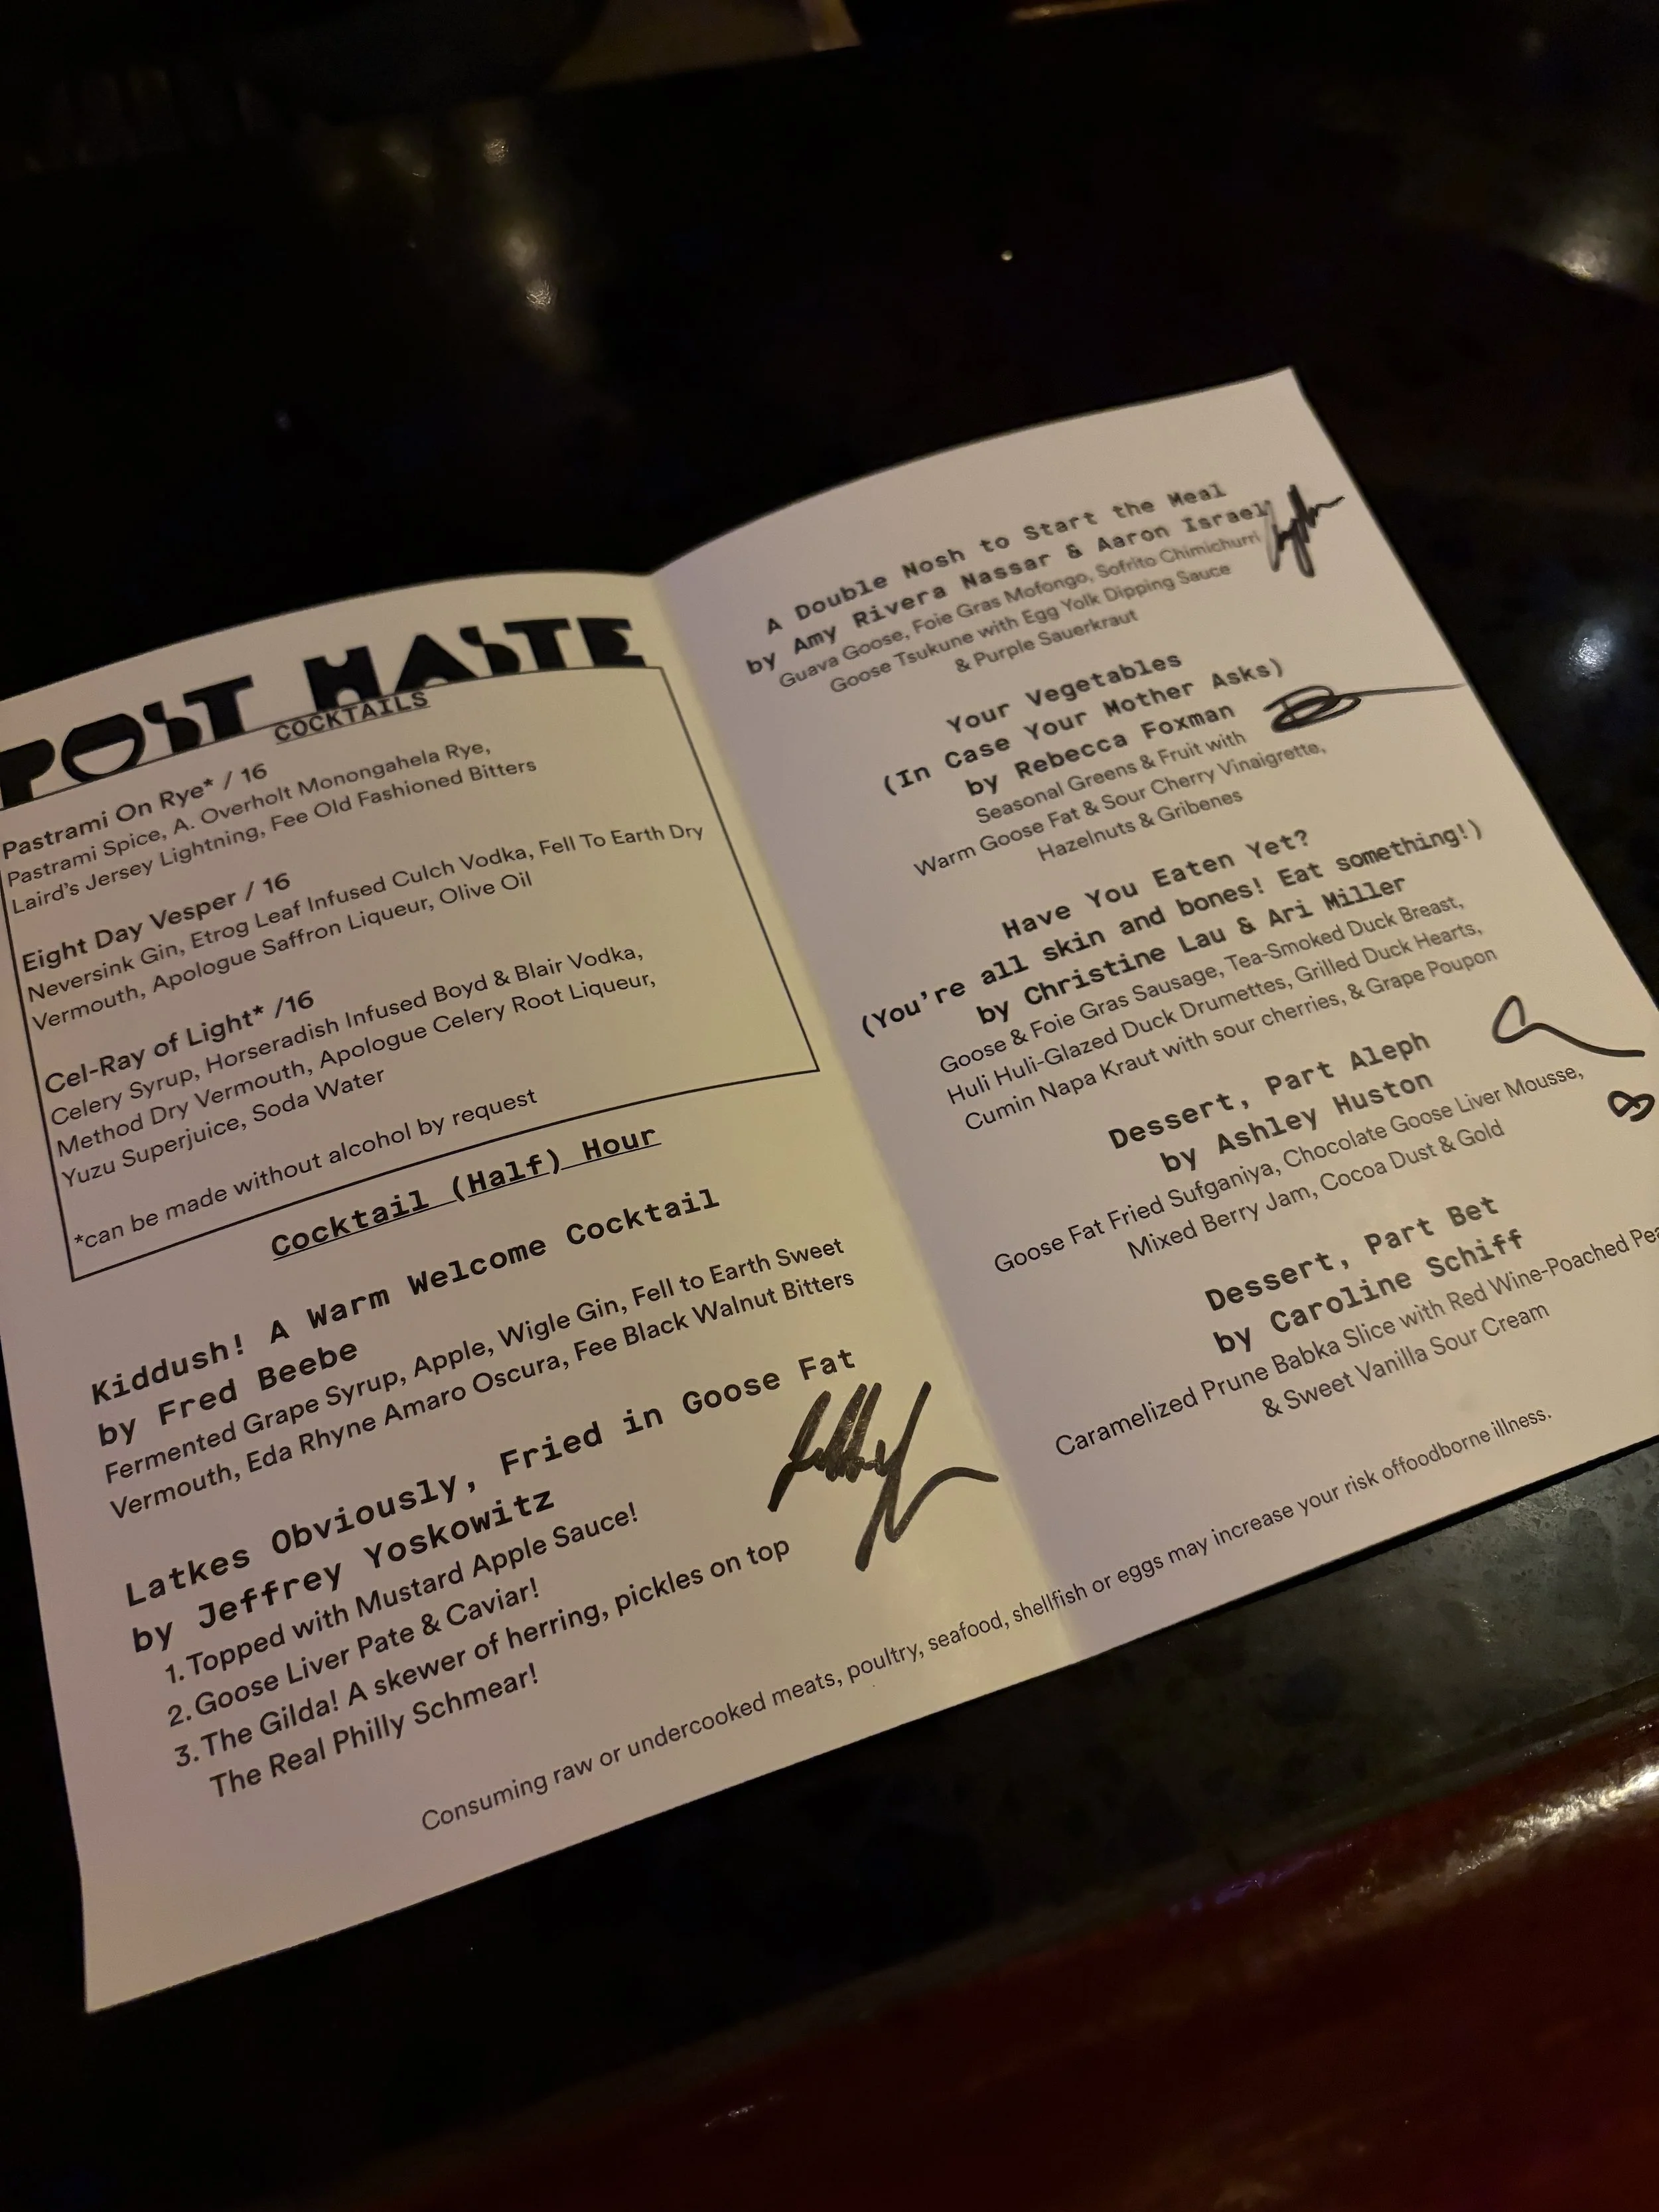 POST HASTE
COCKTAILS
Pastrami On Rye* / 16
Pastrami Spice, A. Overholt Monongahela Rye,
Laird's Jersey Lightning, Fee Old Fashioned Bitters
Eight Day Vesper / 16
Neversink Gin, Etrog Leaf Infused Culch Vodka, Fell To Earth Dry
Vermouth, Apologue Saffron Liqueur, Olive Oil
Cel-Ray of Light* /16
Celery Syrup, Horseradish Infused Boyd & Blair Vodka,
Method Dry Vermouth, Apologue Celery Root Liqueur,
Yuzu Superjuice, Soda Water
*can be made without alcohol by request
Cocktail (Half) Hour
Kiddush! A Warm Welcome Cocktail
by Fred Beebe
Fermented Grape Syrup, Apple, Wigle Gin, Fell to Earth Sweet
Vermouth, Eda Rhyne Amaro Oscura, Fee Black Walnut Bitters
Latkes Obviously, Fried in Goose Fat
by Jeffrey Yoskowitz
1. Topped with Mustard Apple Sauce!
2. Goose Liver Pate & Caviar!
3. The Gilda! A skewer of herring, pickles on top
The Real Philly Schmear!
A Double Nosh to Start the Meal
by Amy Rivera Nassar & Aaron Israel
Guava Goose, Foie Gras Mofongo, Sofrito Chimichurri
Goose Tsukune with Egg Yolk Dipping Sauce
& Purple Sauerkraut
Your Vegetables
(In Case Your Mother Asks)
by Rebecca Foxman
Seasonal Greens & Fruit with
Warm Goose Fat & Sour Cherry Vinaigrette,
Hazelnuts & Gribenes
Have You Eaten Yet?
(You're all skin and bones! Eat something!)
by Christine Lau & Ari Miller
Goose & Foie Gras Sausage, Tea-Smoked Duck Breast,
Huli Huli-Glazed Duck Drumettes, Grilled Duck Hearts,
Cumin Napa Kraut with sour cherries, & Grape Poupon
Dessert, Part Aleph
by Ashley Huston
Goose Fat Fried Sufganiya, Chocolate Goose Liver Mousse,
Mixed Berry Jam, Cocoa Dust & Gold
Dessert, Part Bet
by Caroline Schiff
Caramelized Prune Babka Slice with Red Wine-Poached Pea
& Sweet Vanilla Sour Cream
Consuming raw or undercooked meats, poultry, seafood, shellfish or eggs may increase your risk offoodborne illness.